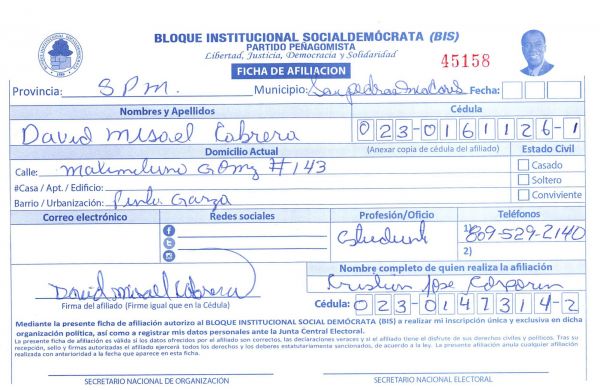 BLOQUE INSTITUCIONAL SOCIALDEMÓCRATA (BIS)
PARTIDO PEÑAGOMISTA
Libertad, Justicia, Democracia y Solidaridad
FICHA DE AFILIACION
45158
Provincia: SPM. Municipio: San pedro de Macoris Fecha:
Nombres y Apellidos Cédula
David Misael Cabrera 023-0161126-1
Domicilio Actual (Anexar copia de cédula del afiliado) Estado Civil
Calle: #143 Casado
#Casa / Apt. / Edificio: Soltero
Barrio / Urbanización: Conviviente
Correo electrónico Redes sociales Profesión/Oficio Teléfonos
Estudiante 1) 809-529-2140
2)
Nombre completo de quien realiza la afiliación
David Misael Cabrera Jose
Firma del afiliado (Firme igual que en la Cédula) Cédula: 023-0147314-2
Mediante la presente ficha de afiliación autorizo al BLOQUE INSTITUCIONAL SOCIAL DEMÓCRATA (BIS) a realizar mi inscripción única y exclusiva en dicha
organización política, así como a registrar mis datos personales ante la Junta Central Electoral.
La presente ficha de afiliación es válida si los datos ofrecidos por el afiliado son correctos, las declaraciones veraces y si el titular tiene el disfrute de sus derechos civiles y políticos. Tras su
recepción, sello y firmas autorizadas el afiliado ejercerá todos los derechos y los deberes estatutariamente sancionados, de acuerdo a la ley. La presente afiliación anula cualquier afiliación
realizada con anterioridad a la fecha que aparece en esta ficha.
SECRETARIO NACIONAL DE ORGANIZACIÓN SECRETARIO NACIONAL ELECTORAL